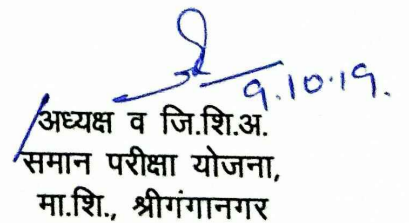 9.10.19.
अध्यक्ष व जि.शि.अ.
समान परीक्षा योजना,
मा.शि., श्रीगंगानगर